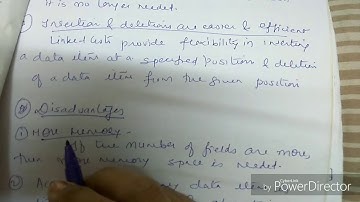 It is no longer needed.
Insertion & deletions are easier & efficient
Linked lists provide flexibility in inserting
a data item at a specified position & deletion
of a data item from the given position
Disadvantages
① More Memory -
If the number of fields are more
then more memory space is needed.
② data
Created by
PowerDirector